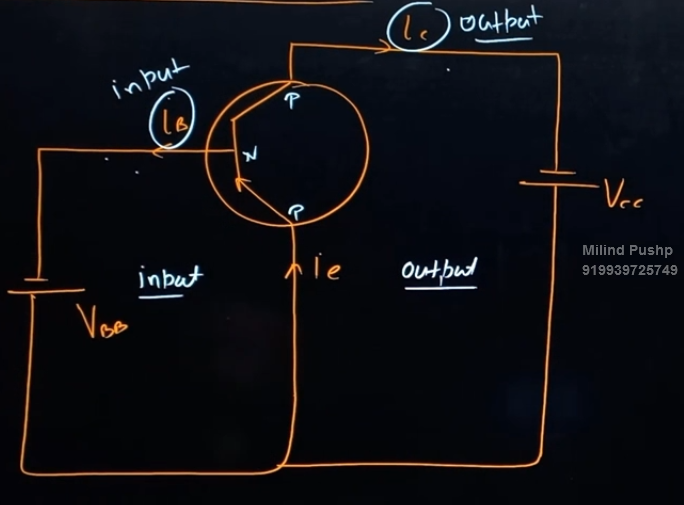 Ic output
input
IB
P
N
Vcc
P
Milind Pushp
919939725749
input
ie
output
VBB